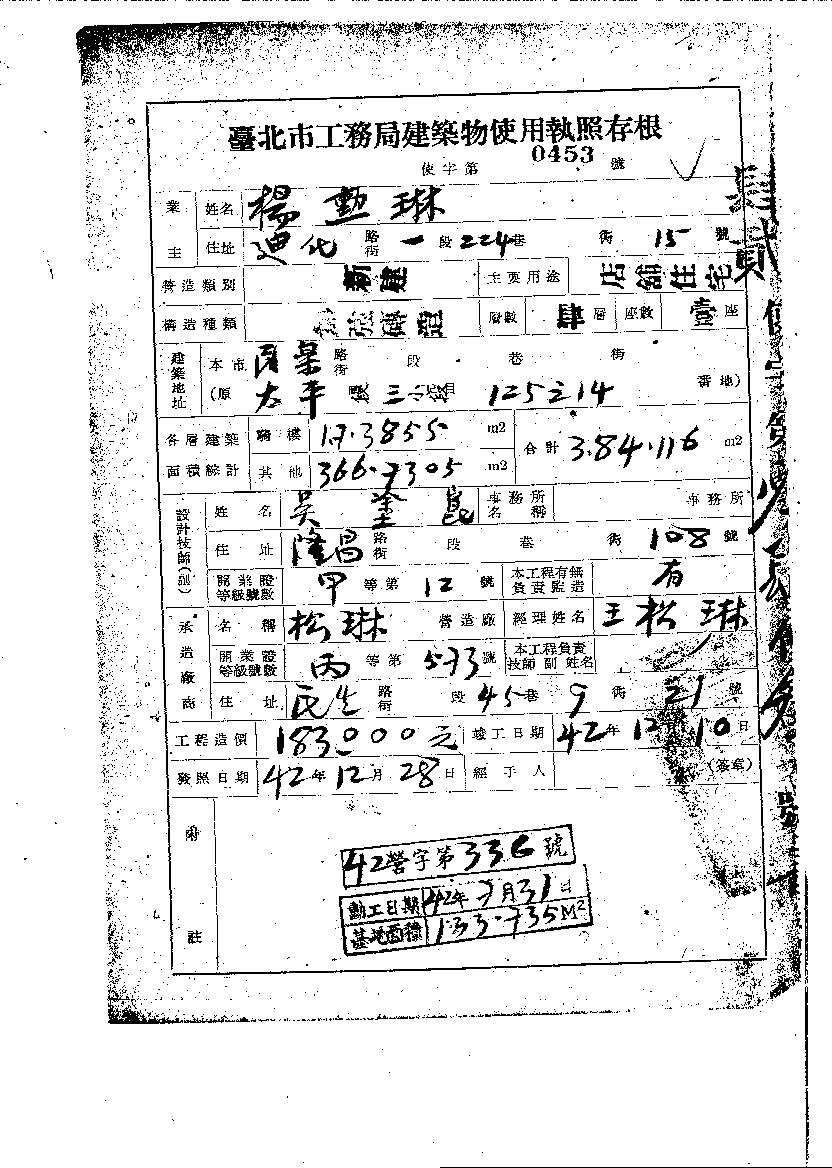 臺北市工務局建築物使用執照存根
使字第 0453 號
業主 姓名 楊勳琳
住址 迪化 路街 一 段 224 巷 街 15 號
營造類別 新建 主要用途 店舖住宅
構造種類 層數 肆 層 座數 壹 座
建築地址 本市 路街 段 巷 街
(原 太平 段 三 125之14 番地)
各層建築面積總計 騎樓 17.3855 m2 合計 384.116 m2
其他 366.7305 m2
設計技師(副) 姓名 吳塗 事務所名稱 事務所
住址 隆昌 路街 段 巷 街 108 號
開業證等級號數 甲 等第 12 號 本工程有無負責監造 有
承造廠商 名稱 松琳 營造廠 經理姓名 王松琳
開業證等級號數 丙 等第 573 號 本工程負責技師副姓名
住址 民生 路街 段 45 巷 9 街 21 號
工程造價 183000元 竣工日期 42年 12 10日
發照日期 42年 12月 28日 經手人 (簽章)
附註
42營字第336號
動工日期 42年7月31日
基地面積 133.735M2